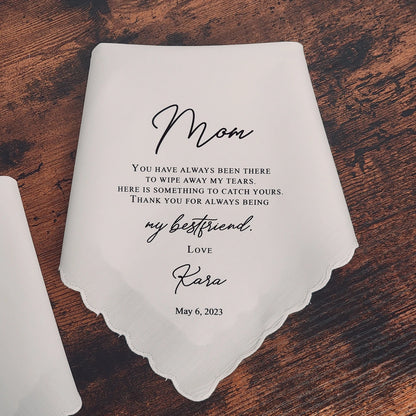 Mom
YOU HAVE ALWAYS BEEN THERE
TO WIPE AWAY MY TEARS.
HERE IS SOMETHING TO CATCH YOURS.
THANK YOU FOR ALWAYS BEING
my bestfriend.
LOVE
Kara
May 6, 2023